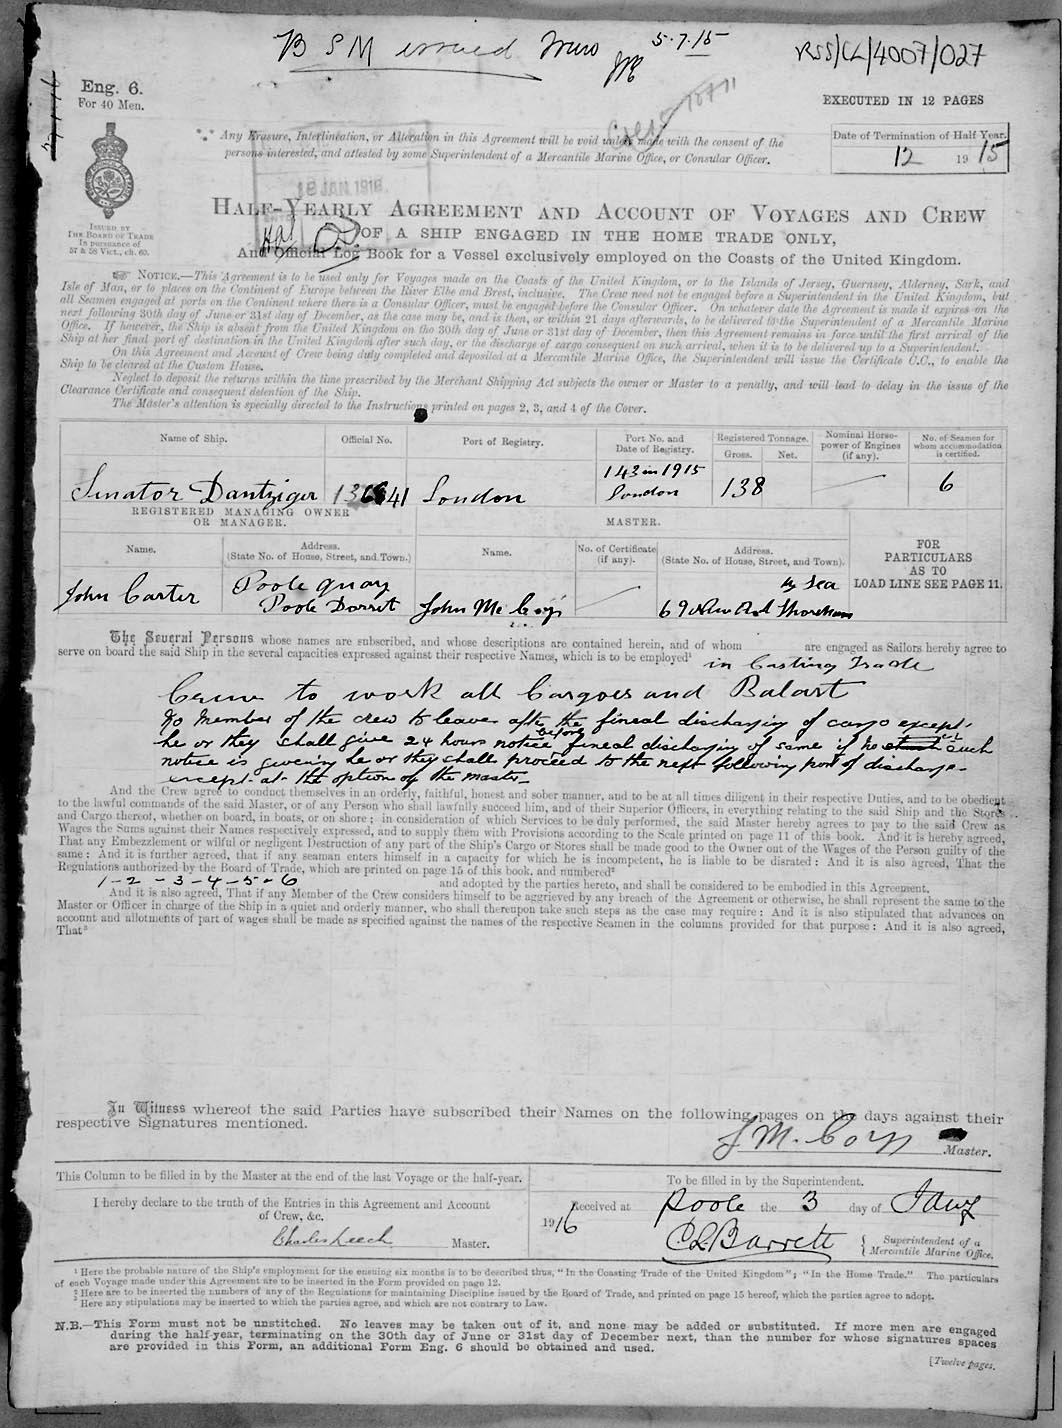 B S M issued
5.7.15
RSS/CL/4007/027
Eng. 6.
For 40 Men.
EXECUTED IN 12 PAGES
Any Erasure, Interlineation, or Alteration in this Agreement will be void unless made with the consent of the
persons interested, and attested by some Superintendent of a Mercantile Marine Office, or Consular Officer.
Date of Termination of Half Year.
12 1915
ISSUED BY
THE BOARD OF TRADE
In pursuance of
57 & 58 Vict., ch. 60.
HALF-YEARLY AGREEMENT AND ACCOUNT OF VOYAGES AND CREW
OF A SHIP ENGAGED IN THE HOME TRADE ONLY,
And Official Log Book for a Vessel exclusively employed on the Coasts of the United Kingdom.
☞ NOTICE.—This Agreement is to be used only for Voyages made on the Coasts of the United Kingdom, or to the Islands of Jersey, Guernsey, Alderney, Sark, and
Isle of Man, or to places on the Continent of Europe between the River Elbe and Brest, inclusive. The Crew need not be engaged before a Superintendent in the United Kingdom, but
all Seamen engaged at ports on the Continent where there is a Consular Officer, must be engaged before the Consular Officer. On whatever date the Agreement is made it expires on the
next following 30th day of June or 31st day of December, as the case may be, and is then, or within 21 days afterwards, to be delivered to the Superintendent of a Mercantile Marine
Office. If however, the Ship is absent from the United Kingdom on the 30th day of June or 31st day of December, then this Agreement remains in force until the first arrival of the
Ship at her final port of destination in the United Kingdom after such day, or the discharge of cargo consequent on such arrival, when it is to be delivered up to a Superintendent.
On this Agreement and Account of Crew being duly completed and deposited at a Mercantile Marine Office, the Superintendent will issue the Certificate C.C., to enable the
Ship to be cleared at the Custom House.
Neglect to deposit the returns within the time prescribed by the Merchant Shipping Act subjects the owner or Master to a penalty, and will lead to delay in the issue of the
Clearance Certificate and consequent detention of the Ship.
The Master's attention is specially directed to the Instructions printed on pages 2, 3, and 4 of the Cover.
Name of Ship. Official No. Port of Registry. Port No. and Date of Registry. Registered Tonnage. Gross. Net. Nominal Horse-power of Engines (if any). No. of Seamen for whom accommodation is certified.
Senator Dantziger 136641 London 143 in 1915 London 138 6
REGISTERED MANAGING OWNER
OR MANAGER.
MASTER.
Name. Address. (State No. of House, Street, and Town.) Name. No. of Certificate (if any). Address. (State No. of House, Street, and Town).
FOR
PARTICULARS
AS TO
LOAD LINE SEE PAGE 11.
John Carter Poole Quay
Poole Dorset John Mc
by Sea
The Several Persons whose names are subscribed, and whose descriptions are contained herein, and of whom are engaged as Sailors hereby agree to
serve on board the said Ship in the several capacities expressed against their respective Names, which is to be employed¹ in Casting Trade
Crew to work all Cargoes and Balast
No Member of the crew to leave after the fineal discharging of cargo except
he or they shall give 24 hours notice before fineal discharging of same if no such
notice is giveing he or they shall proceed to the next following port of discharge
except at the option of the master
And the Crew agree to conduct themselves in an orderly, faithful, honest and sober manner, and to be at all times diligent in their respective Duties, and to be obedient
to the lawful commands of the said Master, or of any Person who shall lawfully succeed him, and of their Superior Officers, in everything relating to the said Ship and the Stores
and Cargo thereof, whether on board, in boats, or on shore; in consideration of which Services to be duly performed, the said Master hereby agrees to pay to the said Crew as
Wages the Sums against their Names respectively expressed, and to supply them with Provisions according to the Scale printed on page 11 of this book. And it is hereby agreed,
That any Embezzlement or wilful or negligent Destruction of any part of the Ship's Cargo or Stores shall be made good to the Owner out of the Wages of the Person guilty of the
same: And it is further agreed, that if any seaman enters himself in a capacity for which he is incompetent, he is liable to be disrated: And it is also agreed, That the
Regulations authorized by the Board of Trade, which are printed on page 15 of this book, and numbered²
1 - 2 - 3 - 4 - 5 - 6 and adopted by the parties hereto, and shall be considered to be embodied in this Agreement.
And it is also agreed, That if any Member of the Crew considers himself to be aggrieved by any breach of the Agreement or otherwise, he shall represent the same to the
Master or Officer in charge of the Ship in a quiet and orderly manner, who shall thereupon take such steps as the case may require: And it is also stipulated that advances on
account and allotments of part of wages shall be made as specified against the names of the respective Seamen in the columns provided for that purpose: And it is also agreed,
That³
In Witness whereof the said Parties have subscribed their Names on the following pages on the days against their
respective Signatures mentioned.
Master.
This Column to be filled in by the Master at the end of the last Voyage or the half-year.
I hereby declare to the truth of the Entries in this Agreement and Account
of Crew, &c.
Charles Leech Master.
To be filled in by the Superintendent.
1916 Received at Poole the 3 day of Jany
C L Barrett Superintendent of a
Mercantile Marine Office.
¹ Here the probable nature of the Ship's employment for the ensuing six months is to be described thus, "In the Coasting Trade of the United Kingdom"; "In the Home Trade." The particulars
of each Voyage made under this Agreement are to be inserted in the Form provided on page 12.
² Here are to be inserted the numbers of any of the Regulations for maintaining Discipline issued by the Board of Trade, and printed on page 15 hereof, which the parties agree to adopt.
³ Here any stipulations may be inserted to which the parties agree, and which are not contrary to Law.
N.B.—This Form must not be unstitched. No leaves may be taken out of it, and none may be added or substituted. If more men are engaged
during the half-year, terminating on the 30th day of June or 31st day of December next, than the number for whose signatures spaces
are provided in this Form, an additional Form Eng. 6 should be obtained and used.
[Twelve pages.